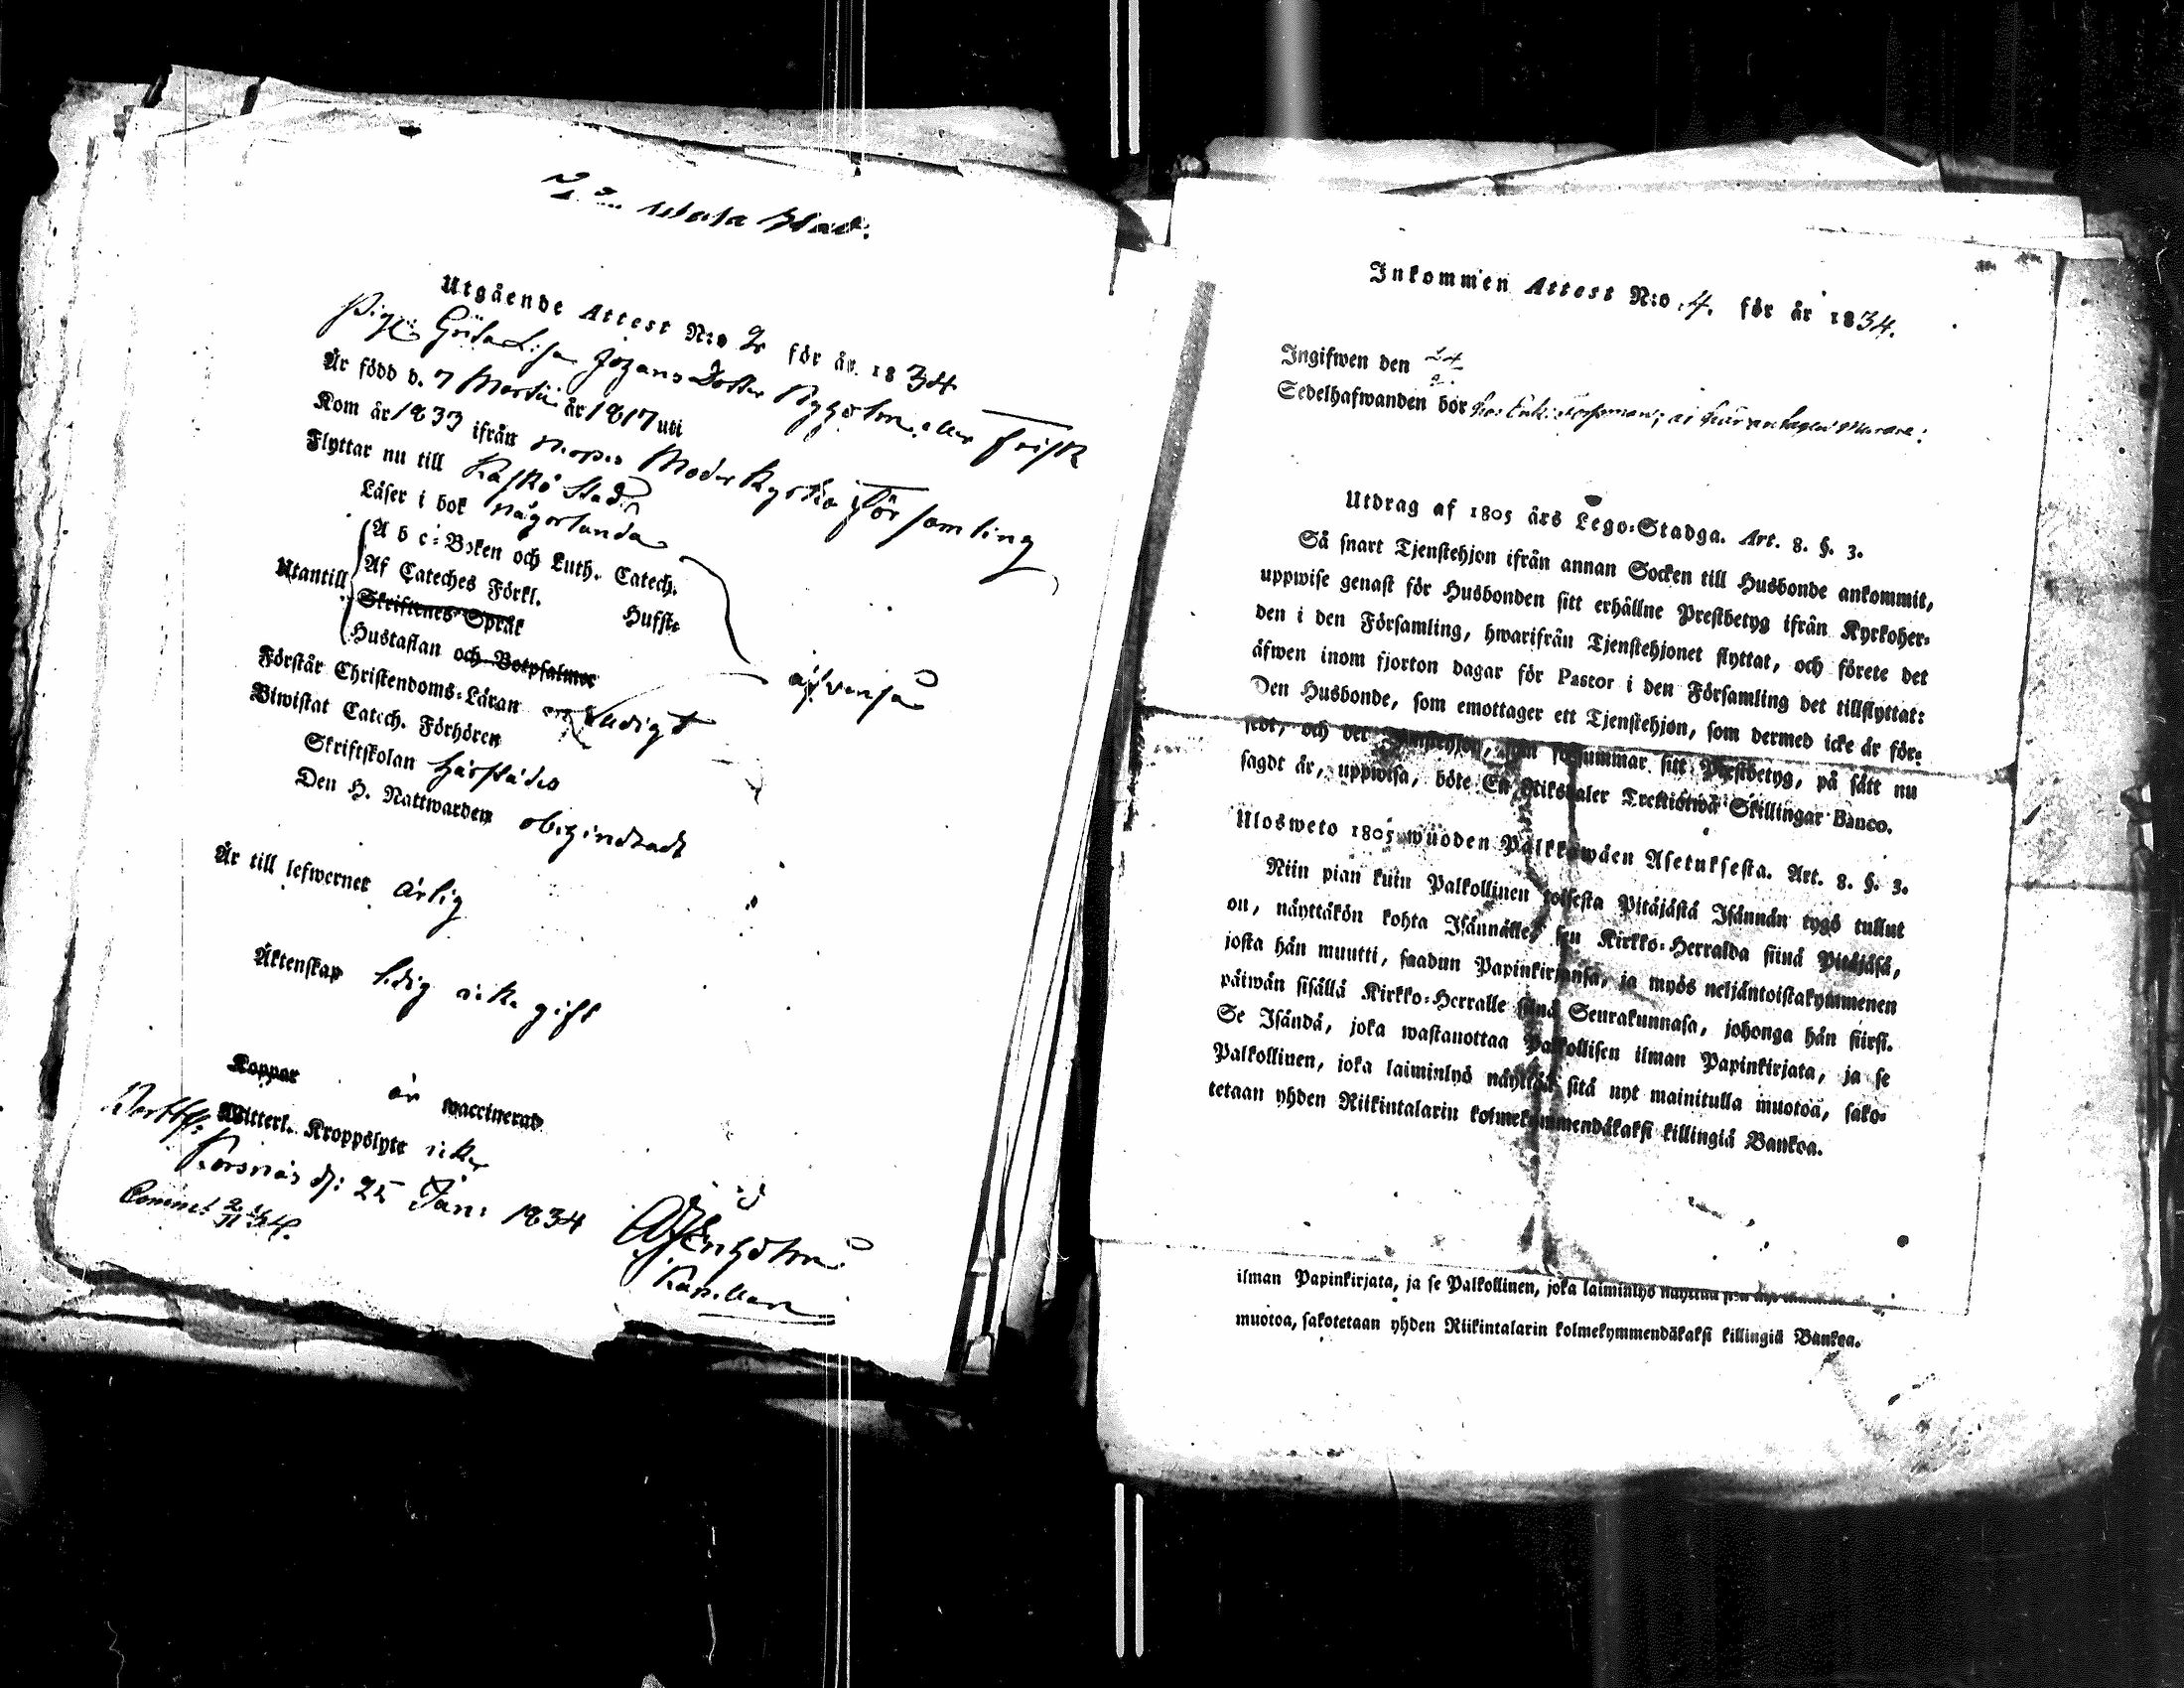 Utgående Attest N:o 2 för år 1834
Pigan Greta Lisa Johans Dotter Nyholm eller Frisk
Är född d. 7 Martii år 1817 uti
Kom år 1833 ifrån Moder Kyrko Församling
Flyttar nu till Kaskö Stad
Läser i bok någorlunda
A b c-Boken och Luth. Catech.
Utantill Af Cateches Förkl. Hufst:
Skriftenes Språk
Hustaflan och Botpsalmer
äfvenså
Förstår Christendoms-Läran
Biwistat Catech. Förhören
Skriftskolan härstädes
Den H. Nattwarden obehindradt
Är till lefwernet ärlig
Äktenskap ledig icke gift
Koppor är waccinerad
Witterl. Kroppslyte icke
Korsnäs d: 25 Jan: 1834
Inkommen Attest N:o 4. för år 1834.
Ingifwen den
Sedelhafwanden bor hos
Utdrag af 1805 års Lego-Stadga. Art. 8. §. 3.
Så snart Tjenstehjon ifrån annan Socken till Husbonde ankommit,
uppwise genast för Husbonden sitt erhållne Prestbetyg ifrån Kyrkoher-
den i den Församling, hwarifrån Tjenstehjonet flyttat, och förete det
äfwen inom fjorton dagar för Pastor i den Församling det tillflyttat:
Den Husbonde, som emottager ett Tjenstehjon, som dermed icke är för-
sedt, och det Tjenstehjon, som försummar sitt Prestbetyg, på sätt nu
sagdt är, uppwisa, böte En Riksdaler Trettiotwå Skillingar Banco.
Ulosweto 1805 wuoden Palkkawäen Asetuksesta. Art. 8. §. 3.
Niin pian kuin Palkollinen toisesta Pitäjästä Isännän tygö tullut
on, näyttäkön kohta Isännälle, sen Kirkko-Herralda siinä Pitäjäsä,
josta hän muutti, saadun Papinkirjansa, ja myös neljäntoistakymmenen
päiwän sisällä Kirkko-Herralle siinä Seurakunnasa, johonga hän siirsi.
Se Isändä, joka wastanottaa Palkollisen ilman Papinkirjata, ja se
Palkollinen, joka laiminlyö näyttää sitä nyt mainitulla muotoa, sako-
tetaan yhden Riikintalarin kolmekymmendäkaksi killingiä Bankoa.
ilman Papinkirjata, ja se Palkollinen, joka laiminlyö näyttää
muotoa, sakotetaan yhden Riikintalarin kolmekymmendäkaksi killingiä Bankoa.